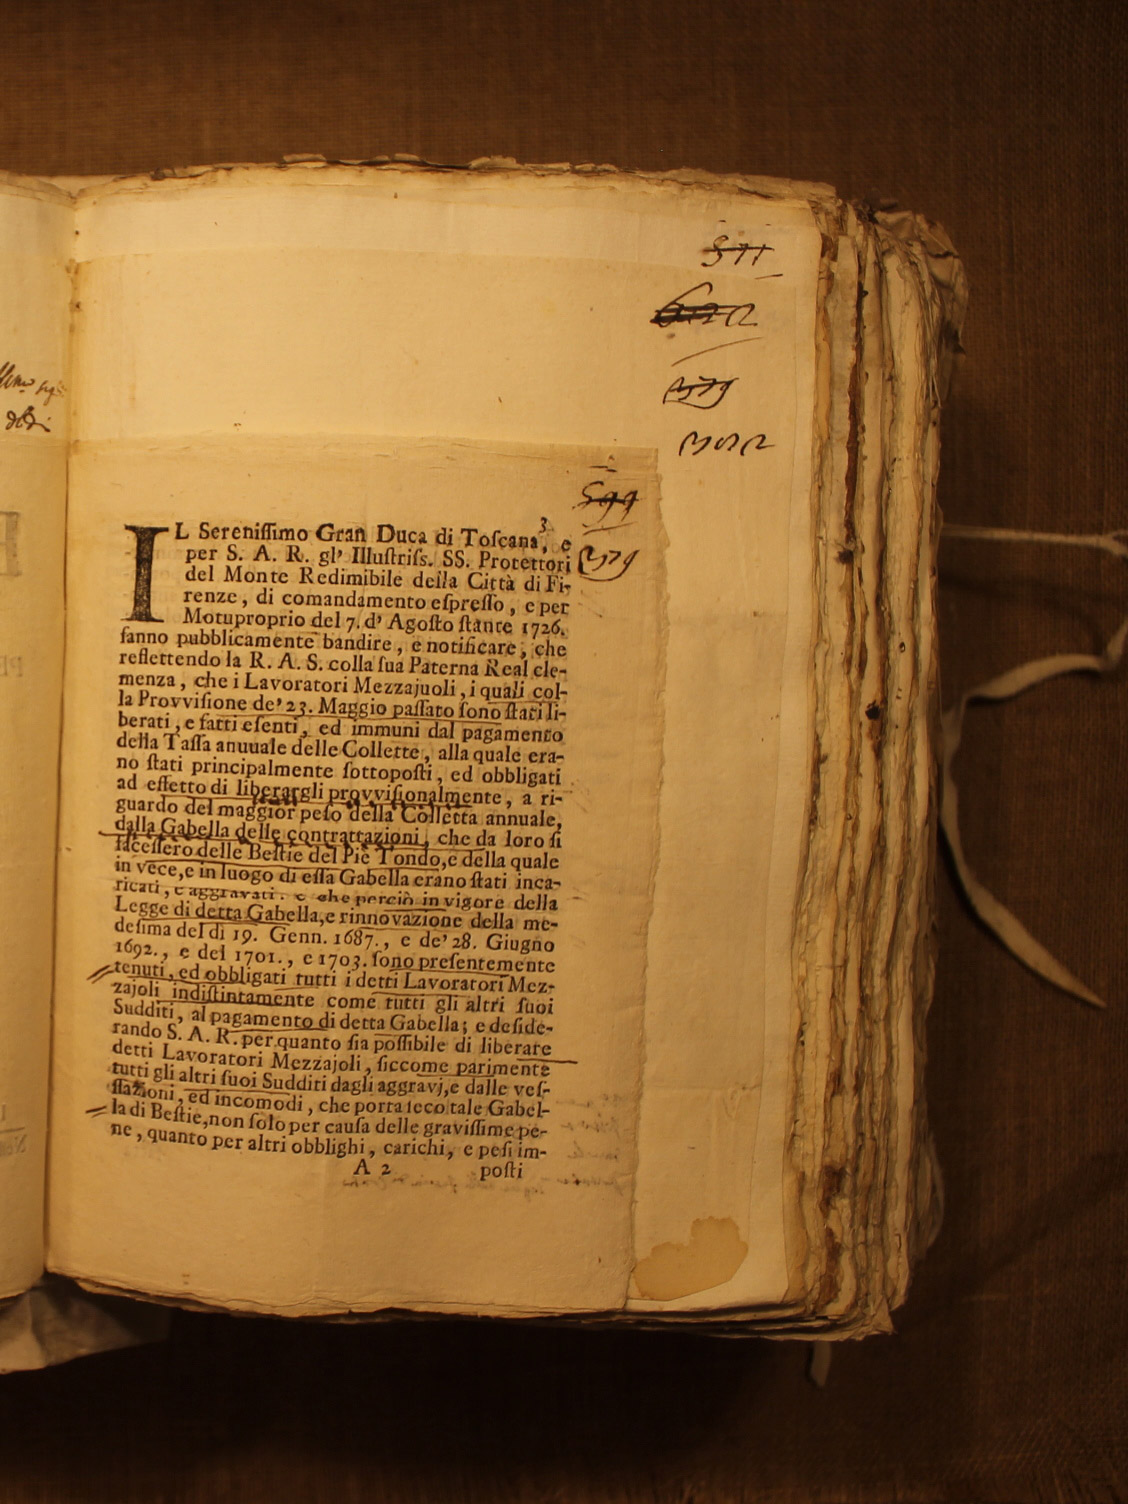 511
622
379
3022
599
379
3
IL Sereniſſimo Gran Duca di Toſcana, e
per S. A. R. gl' Illuſtriſs. SS. Protettori
del Monte Redimibile della Città di Fi-
renze, di comandamento eſpreſſo, e per
Motuproprio del 7. d' Agoſto ſtante 1726.
fanno pubblicamente bandire, e notificare, che
reflettendo la R. A. S. colla ſua Paterna Real cle-
menza, che i Lavoratori Mezzajuoli, i quali col-
la Provviſione de' 23. Maggio paſſato ſono ſtati li-
berati, e fatti eſenti, ed immuni dal pagamento
della Taſſa anuuale delle Collette, alla quale era-
no ſtati principalmente ſottopoſti, ed obbligati
ad effetto di liberargli provviſionalmente, a ri-
guardo del maggior peſo della Colletta annuale,
dalla Gabella delle contrattazioni, che da loro ſi
faceſſero delle Beſtie del Piè Tondo, e della quale
in vece, e in luogo di eſſa Gabella erano ſtati inca-
ricati, e aggravati: e che perciò in vigore della
Legge di detta Gabella, e rinnovazione della me-
deſima del dì 19. Genn. 1687., e de' 28. Giugno
1692., e del 1701., e 1703. ſono preſentemente
tenuti, ed obbligati tutti i detti Lavoratori Mez-
zajoli indiſtintamente come tutti gli altri ſuoi
Sudditi, al pagamento di detta Gabella; e deſide-
rando S. A. R. per quanto ſia poſſibile di liberare
detti Lavoratori Mezzajoli, ſiccome parimente
tutti gli altri ſuoi Sudditi dagli aggravj, e dalle veſ-
ſſazioni, ed incomodi, che porta ſeco tale Gabel-
la di Beſtie, non ſolo per cauſa delle graviſſime pe-
ne, quanto per altri obblighi, carichi, e peſi im-
A 2 poſti